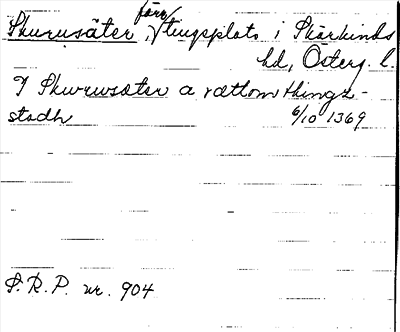 Skurusäter, förr tingsplats i Skärkinds
hd, Österg. l.
I Skurusæter a rættom things-
stadh 6/10 1369
S.R.P. nr. 904